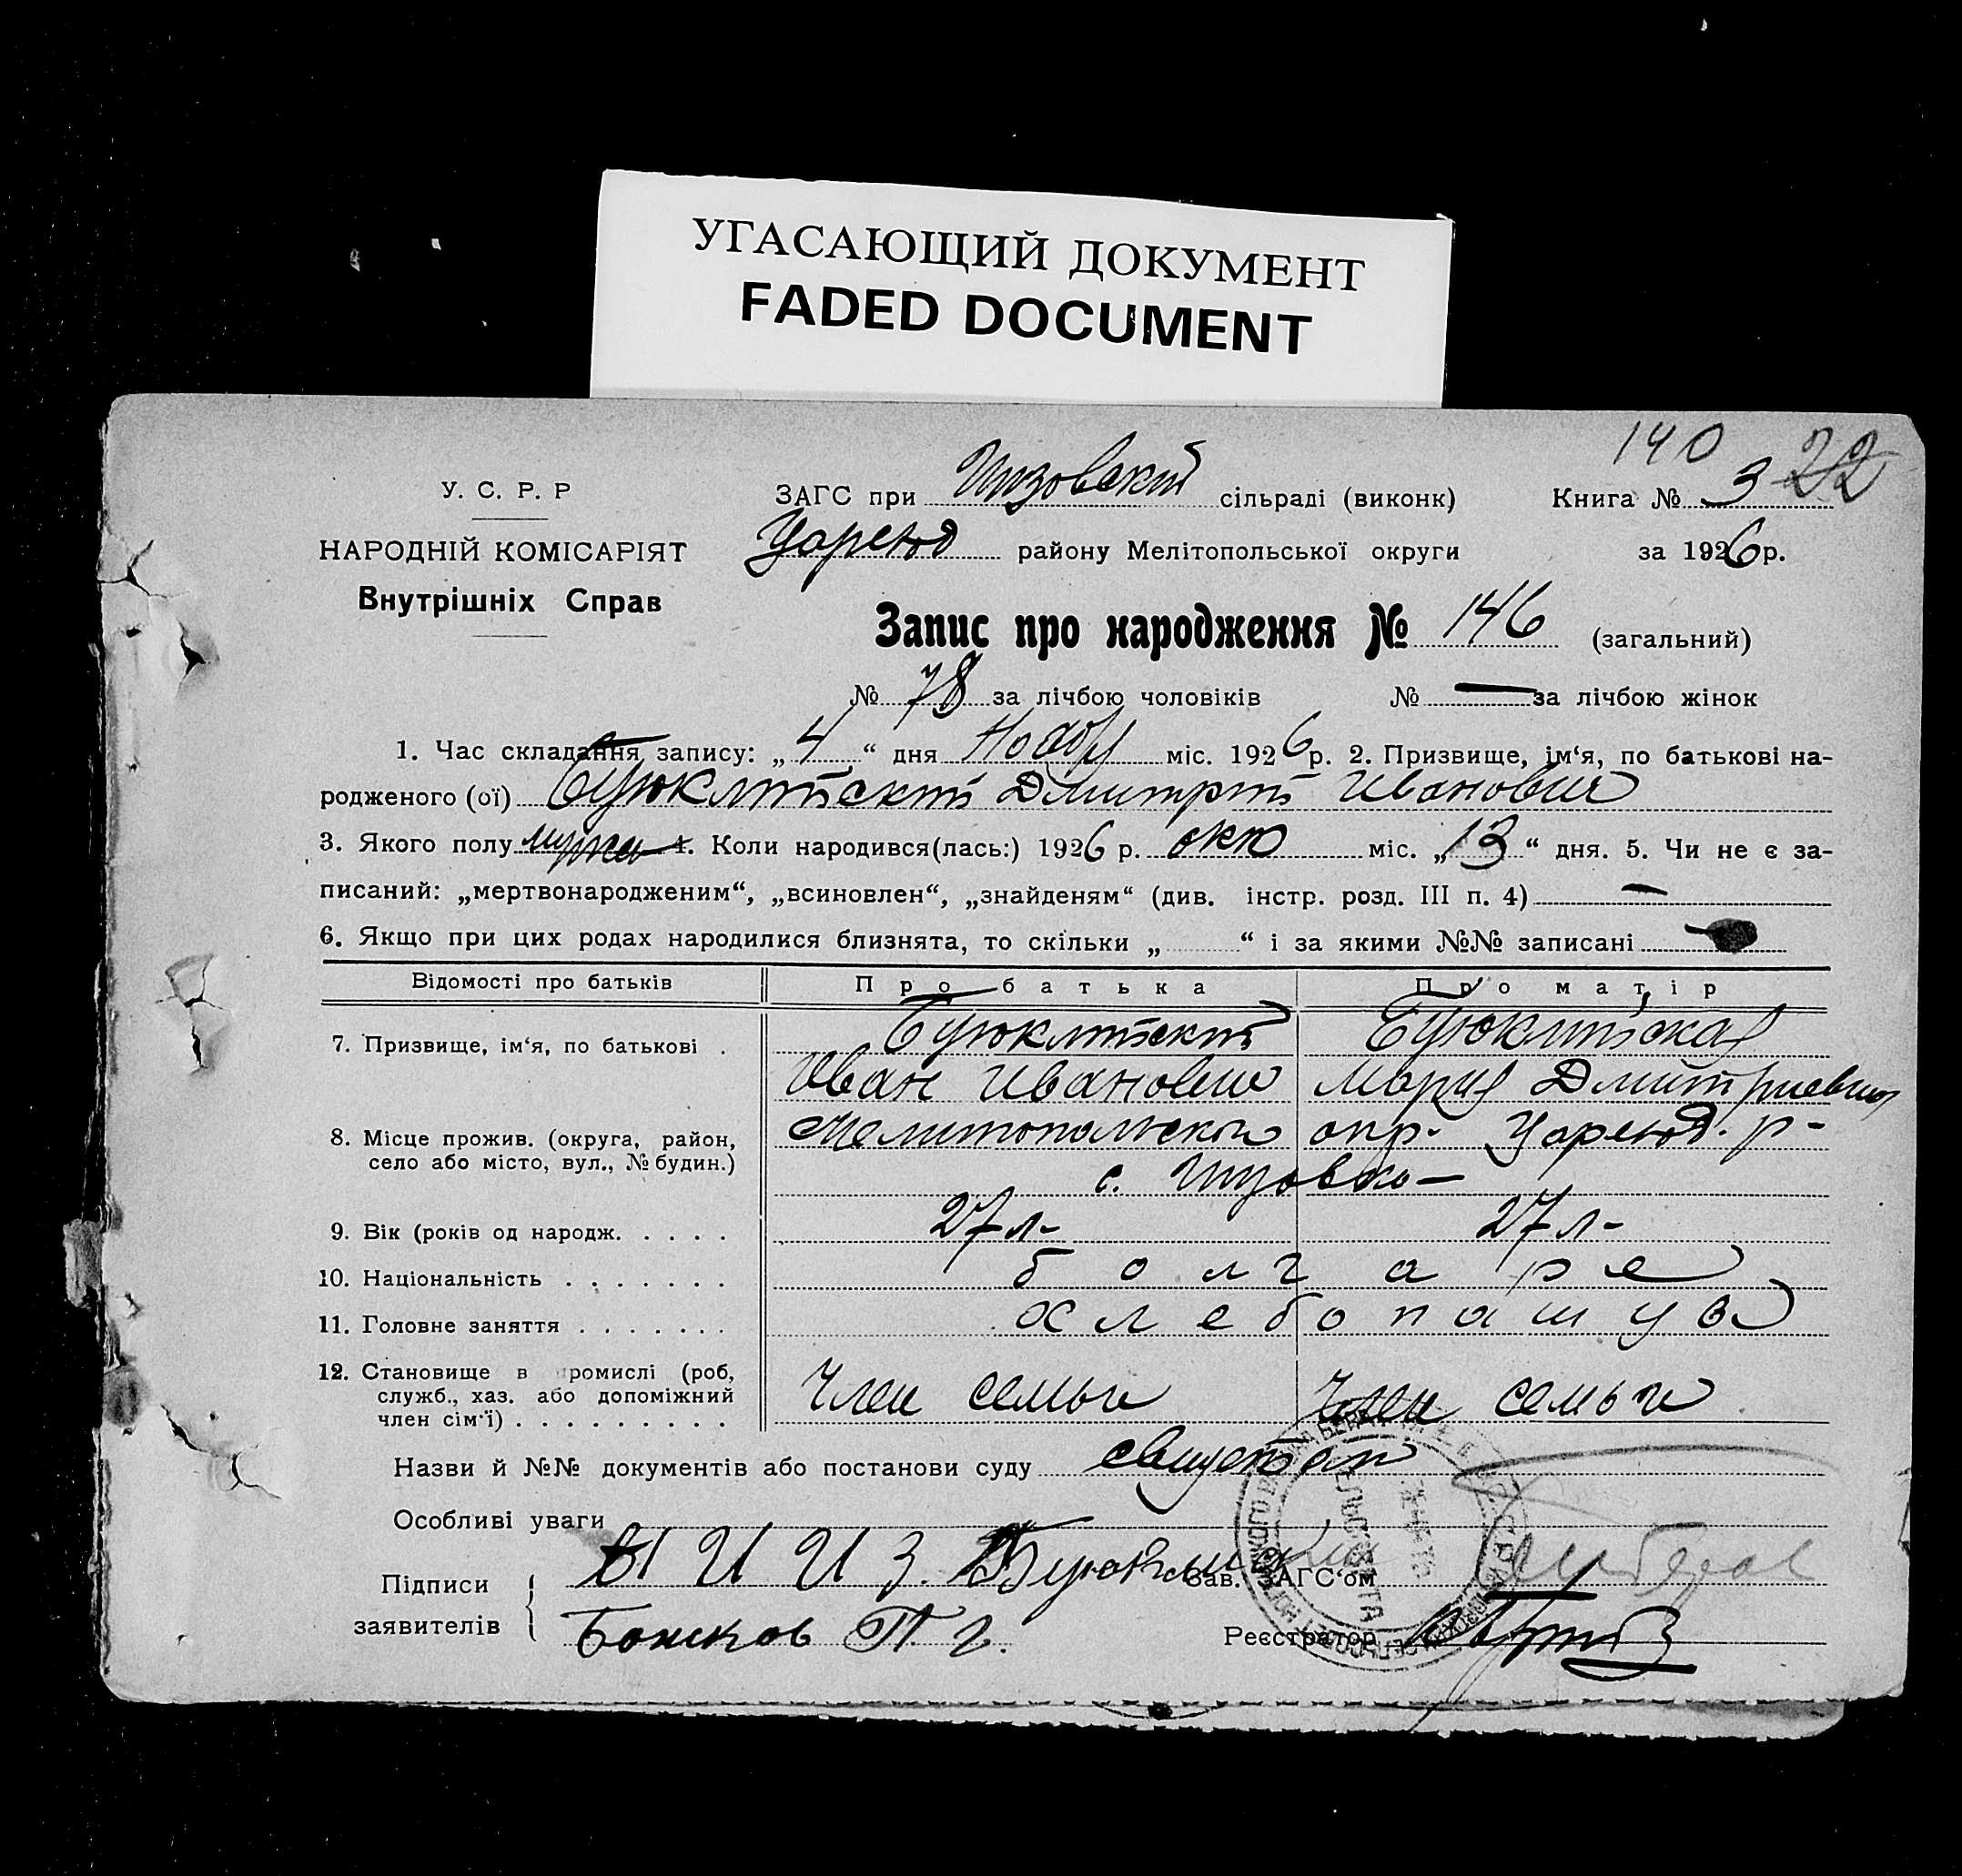 УГАСАЮЩИЙ ДОКУМЕНТ
FADED DOCUMENT
140
22
У. С. Р. Р
НАРОДНІЙ КОМІСАРІЯТ
Внутрішніх Справ
ЗАГС при сільраді (виконк) Книга № 3
району Мелітопольської округи за 1926 р.
Запис про народження № 146 (загальний)
№ 78 за лічбою чоловіків № — за лічбою жінок
1. Час складання запису: „4“ дня міс. 1926 р. 2. Призвище, ім‘я, по батькові на-
родженого (ої) Дмитрий Иванович
3. Якого полу 4. Коли народився(лась:) 1926 р. окт міс. „13“ дня. 5. Чи не є за-
писаний: „мертвонародженим“, „всиновлен“, „знайденям“ (див. інстр. розд. III п. 4) —
6. Якщо при цих родах народилися близнята, то скільки „ “ і за якими №№ записані
Відомості про батьків Про батька Про матір
7. Призвище, ім‘я, по батькові .
Иван Иванович Мария
8. Місце прожив. (округа, район,
село або місто, вул., № будин.)
Мелитопольской окр.
с.
9. Вік (років од народж. . . . . 27 л- 27 л-
10. Національність . . . . . . . болгаре
11. Головне заняття . . . . . . .
12. Становище в промислі (роб,
служб., хаз. або допоміжний
член сім‘ї) . . . . . . . . .
Член семьи Член семьи
Назви й №№ документів або постанови суду
Особливі уваги
Підписи
заявителів
Божков П. г.
Зав. ЗАГС‘ом
Реєстратор